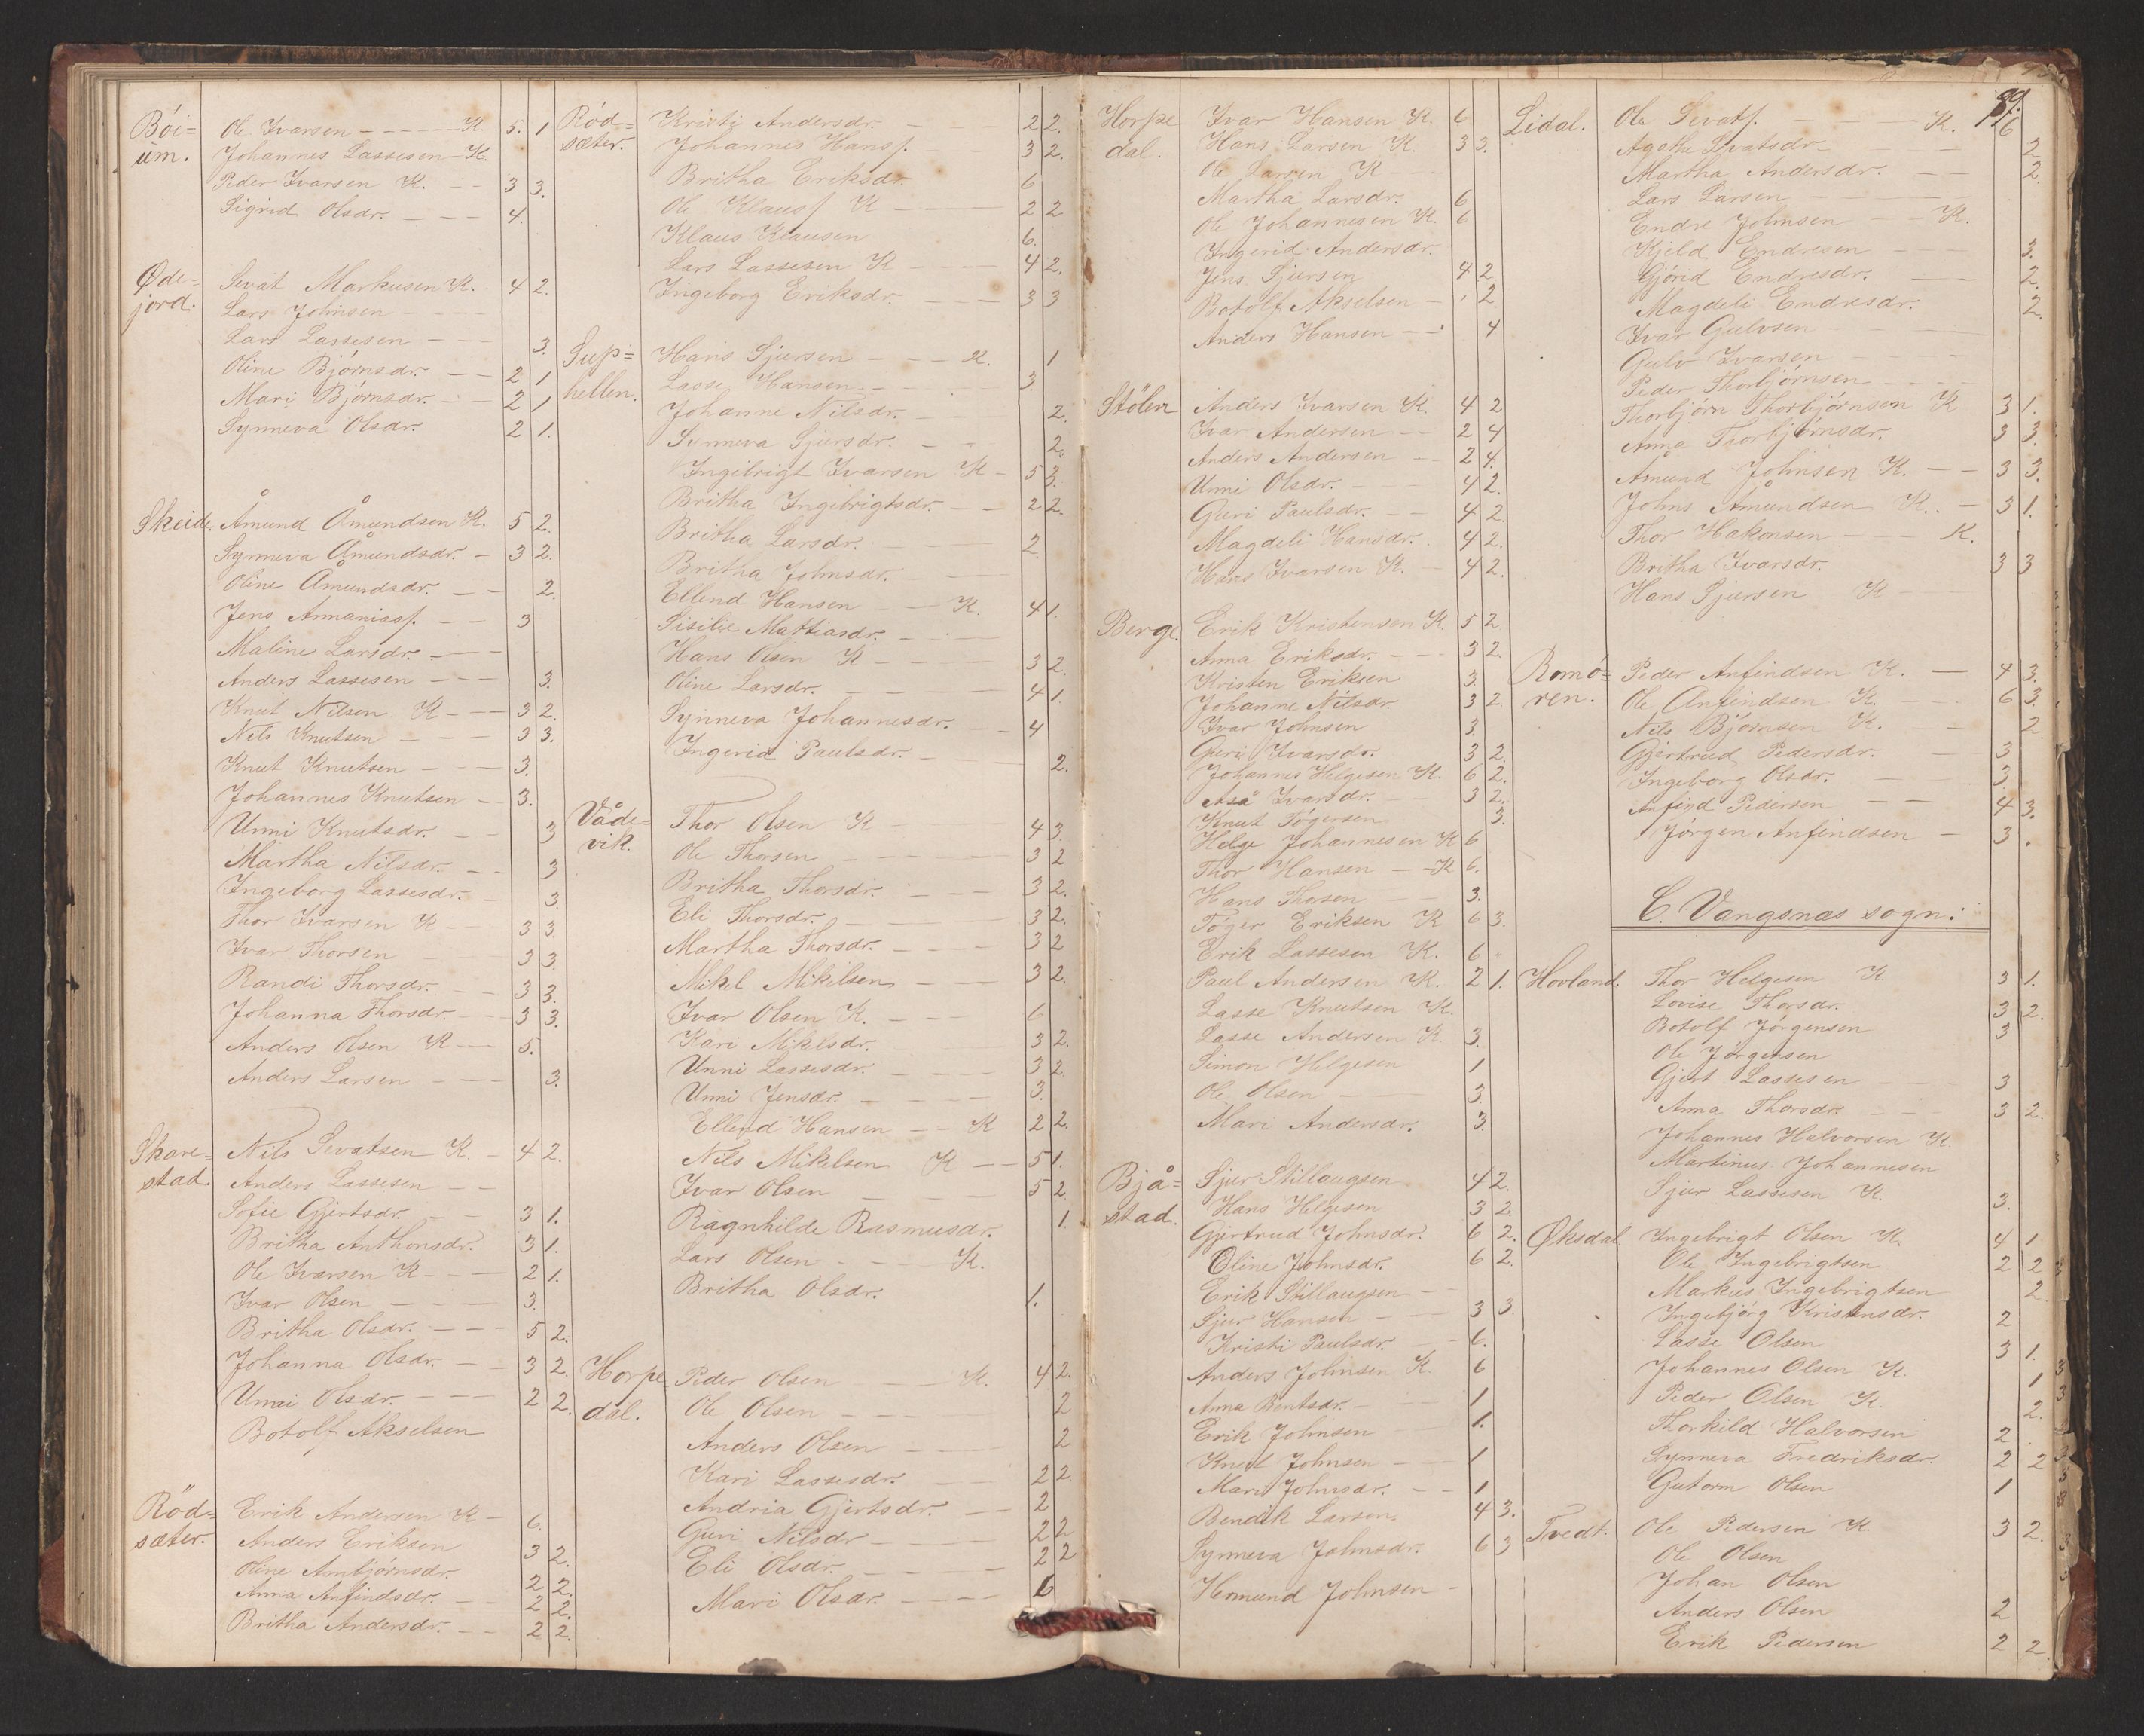 Bói= Ole Ivarsen - - - - - K. 5. 1
um. Johannes Lassesen - K.
Peder Ivarsen K. - - 3 3.
Sigrid Olsdr. - - - 4.
Øde= Sivat Markusen K. 4 2.
jord. Lars Johnsen - - -
Lars Lassesen - - - 3.
Oline Bjórnsdr. - - 2 1
Mari Bjórnsdr. - - 2 1
Synneva Olsdr. 2 1.
Skeide. Åmund Åmundsen K. 5 2.
Synneva Åmundsdr. - 3 2.
Oline Åmundsdr. - - 2.
Jens Annaniass. - - 3
Maline Larsdr. - -
Anders Lassesen - - - 3.
Knut Nilsen K - - 3 2.
Nils Knutsen - - - 3 3.
Knut Knutsen - - - 3.
Johannes Knutsen - - 3.
Unni Knutsdr. - - 3
Martha Nilsdr. - - 3
Ingeborg Lassesdr. - 3.
Thor Ivarsen K - - 3 3.
Ivar Thorsen - - 3 3.
Randi Thorsdr. - - 3 3.
Johanna Thorsdr. - - 3 3.
Anders Olsen K - - 5.
Anders Larsen - - - 3.
Skare= Nils Sivatsen K. - 4 2.
stad. Anders Lassesen - -
Sofie Gjertsdr. - - 3 1.
Britha Anthonsdr. 3 1.
Ole Ivarsen K - - - 2 1.
Ivar Olsen - - - 3.
Britha Olsdr. - - - 5 2.
Johanna Olsdr. - - 3 2.
Unni Olsdr. - - - 2 2.
Botolf Akselsen
Röd= Erik Andersen K - 6.
sæter. Anders Eriksen 3 2.
Oline Ambjórnsdr. 2 2.
Anna Anfindsdr. - - 2 2.
Britha Andersdr. - - 2 2.
Röd= Kristi Andersdr. - - - 2 2.
sæter. Johannes Hanss. - - 3 2.
Britha Eriksdr. 6
Ole Klauss. K - - - 2 2
Klaus Klausen 6.
Lars Lassesen K - - - 4 2.
Ingeborg Eriksdr. - - - 3 3
Sup= Hans Sjursen - - - K. 1
hellen. Lasse Hansen - - - 3.
Johanne Nilsdr. - - - 2.
Synneva Sjursdr. - - 2.
Ingebrigt Ivarsen K - 5 3.
Britha Ingebrigtsdr. - - 2 2.
Britha Larsdr. - - - 2.
Britha Johnsdr. - - -
Ellend Hansen - - K. 4 1.
Sisilie Mattiasdr. - - -
Hans Olsen K - - - 3 2.
Oline Larsdr. - - - 4 1.
Synneva Johannesdr. - 4
Ingerid Paulsdr. - - 2.
Våde= Thor Olsen K - - - 4 3.
vik. Ole Thorsen - - - 3 2
Britha Thorsdr. - - - 3 2.
Eli Thorsdr. - - - 3 2.
Martha Thorsdr. - - - 3 2
Mikel Mikelsen - - - 3 2.
Ivar Olsen K. - - - 6
Kari Mikelsdr. 3 2.
Unni Lassesdr. - - - 3 2
Unni Jensdr. - - - 3.
Ellend Hansen - - K 2 2.
Nils Mikelsen K - - 5 1.
Ivar Olsen - - - 5 2.
Ragnhilde Rasmusdr. 1.
Lars Olsen - - - K.
Britha Olsdr. 1.
Horpe Peder Olsen - - K. 4 2.
dal. Ole Olsen - - - 2
Anders Olsen - - - 2
Kari Lassesdr. - - 2 2.
Andria Gjertsdr. - - 2
Guri Nilsdr - - - 2 2
Eli Olsdr. - - - 2 2
Mari Olsdr. - - - 6
Horpe Ivar Hansen K. 6
dal. Hans Larsen K. 3 3.
Ole Larsen K - - -
Martha Larsdr. 6
Ole Johannesen K. 6
Ingerid Andersdr.
Jens Sjursen 4 2.
Botolf Akselsen - 2
Anders Hansen - - 4
Stölen Anders Ivarsen K. 4 2
Ivar Andersen - - 2 4
Anders Andersen - - 2 4.
Unni Olsdr. - - 4 2.
Guri Paulsdr. - - 4 2.
Magdeli Hansdr. 4 2.
Hans Ivarsen K. - 4 2.
Berge. Erik Kristensen K. 5 2
Anna Eriksdr. - - - 3 2.
Kristen Eriksen 3.
Johanne Nilsdr. 3 2.
Ivar Johnsen 3.
Guri Ivarsdr. 3 2.
Johannes Helgesen K. 6 2.
Åså Ivarsdr. - - 3 2.
Knut Tögersen 3.
Helge Johannesen K 6
Thor Hansen - - K 6.
Hans Thorsen - - 3.
Töger Eriksen K 6 3.
Erik Lassesen K. 6
Paul Andersen K. 2 1.
Lasse Knutsen K.
Lasse Andersen K. 3.
Simon Helgesen 1
Ole Olsen - - 3.
Mari Andersdr. 3.
Bjå= Sjur Stillaugsen 4 2.
stad. Hans Helgesen 3 2.
Gjertrud Johnsdr. 6 2.
Oline Johnsdr. 6 2.
Erik Stillaugsen - -
Sjur Hansen - - 3 3.
Kristi Paulsdr. - - 6.
Anders Johnsen K. 6
Anna Bentsdr. - - 1
Erik Johnsen - - 1.
Knut Johnsen - - - 1
Mari Johnsdr. - - 1
Bendik Larsen 4 3.
Synneva Johnsdr. 6 3
Homund Johnsen -
89.
Lidal. Ole Sivats. - - - K. 6
Agathe Sivatsdr - - - 2
Martha Andersdr. - - 2.
Lars Larsen - - -
Endre Johnsen - - K.
Kjeld Endresen - - 3.
Gjórid Endresdr. - - 2.
Magdeli Endresdr. 2.
Ivar Gulvsen - - -
Gulv Ivarsen - - -
Peder Thorbjórnsen - - -
Thorbjórn Thorbjórnsen K 3 1.
Anna Thorbjórnsdr. 3 3.
Amund Johnsen K. - - 3 3.
Johns Åmundsen K. - 3 1.
Thor Hakonsen - - K.
Britha Ivarsdr. 3 3
Hans Sjursen K - -
Romö= Peder Anfindsen K. - 4 3.
ren. Ole Anfindsen K. - - 6 3.
Nils Bjórnsen K. - 2
Gjertrud Pedersdr. - - 3
Ingeborg Olsdr. - 3.
Anfind Pedersen - - 4 3.
Jórgen Anfindsen - 3.
C. Vangsnæs sogn:
Hovland. Thor Helgesen K 3 1.
Lovise Thorsdr. 3 2.
Botolf Jörgensen 3
Ole Jörgensen
Gjert Lassesen - - 3
Anna Thorsdr. - - - 3 2.
Johannes Halvorsen K
Martinus Johannesen
Sjur Lassesen K. 3.
Øksdal Ingebrigt Olsen K. 4 1
Ole Ingebrigtsen 2 2
Markus Ingebrigtsen 2
Ingebjórg Kristensdr. 2
Lasse Olsen 3 1.
Johannes Olsen K. 1
Peder Olsen K. 2.
Thorkild Halvorsen 2
Synneva Fredriksdr. 2 2
Gutorm Olsen 1
Tvedt. Ole Pedersen K. 3 2.
Ole Olsen
Johan Olsen
Anders Olsen 2
Erik Pedersen 2 2.